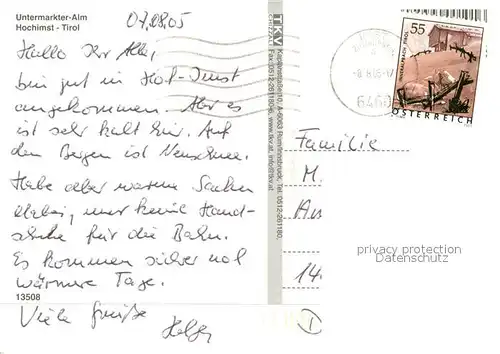 Untermarkter-Alm
Hochimst - Tirol
07.08.05
Hallo Ihr Alle,
bin gut in Hoch-Imst
angekommen. Aber es
ist sehr kalt hier. Auf
den Bergen ist Neuschnee.
Habe aber warme Sachen
dabei, nur keine Hand-
schuhe für die Bahn.
Es kommen sicher noch
wärmere Tage.
13508
Viele Grüße
Holger
TKV
Tel. 0512-261180,
Fax 0512-261180-8, www.tkv.at, info@tkv.at
6460
55
ÖSTERREICH
Familie
M.
14
D
privacy protection
Datenschutz